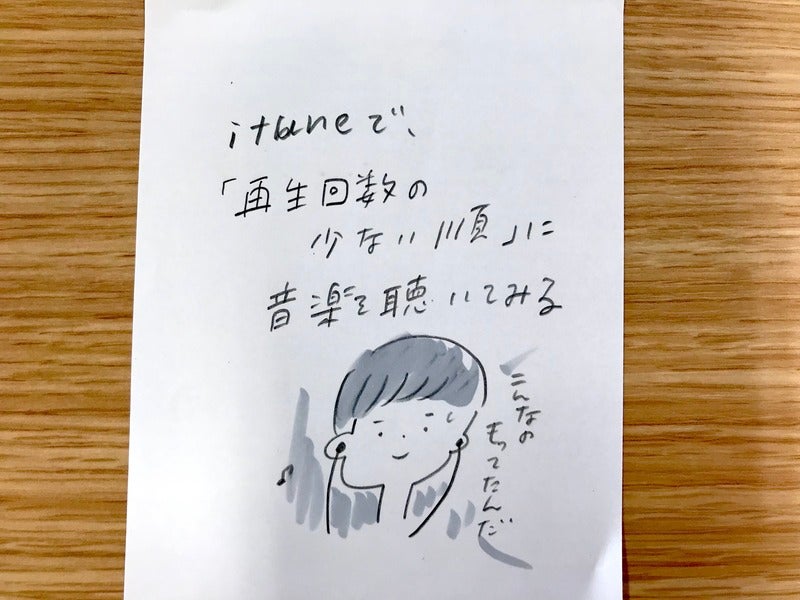 ituneで、
「再生回数の
少ない順」に
音楽を聴いてみる
こんなの
もってたんだ